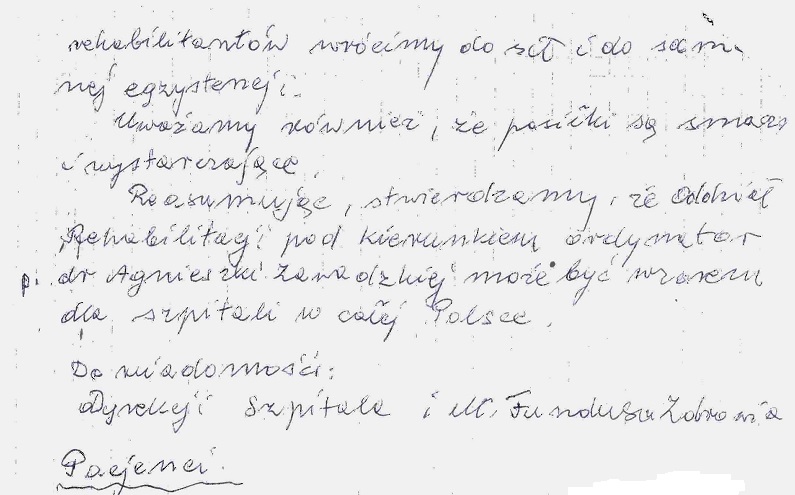 rehabilitantów wrócimy do sił i do sam-
nej egzystencji.
Uważamy również, że posiłki są smacz
i wystarczające.
Reasumując, stwierdzamy, że Oddział
Rehabilitacji pod kierunkiem ordynator
p. dr Agnieszki Zawadzkiej może być wzorem
dla szpitali w całej Polsce.
Do wiadomości:
Dyrekcji Szpitala i N. Fundusz Zdrowia
Pacjenci.